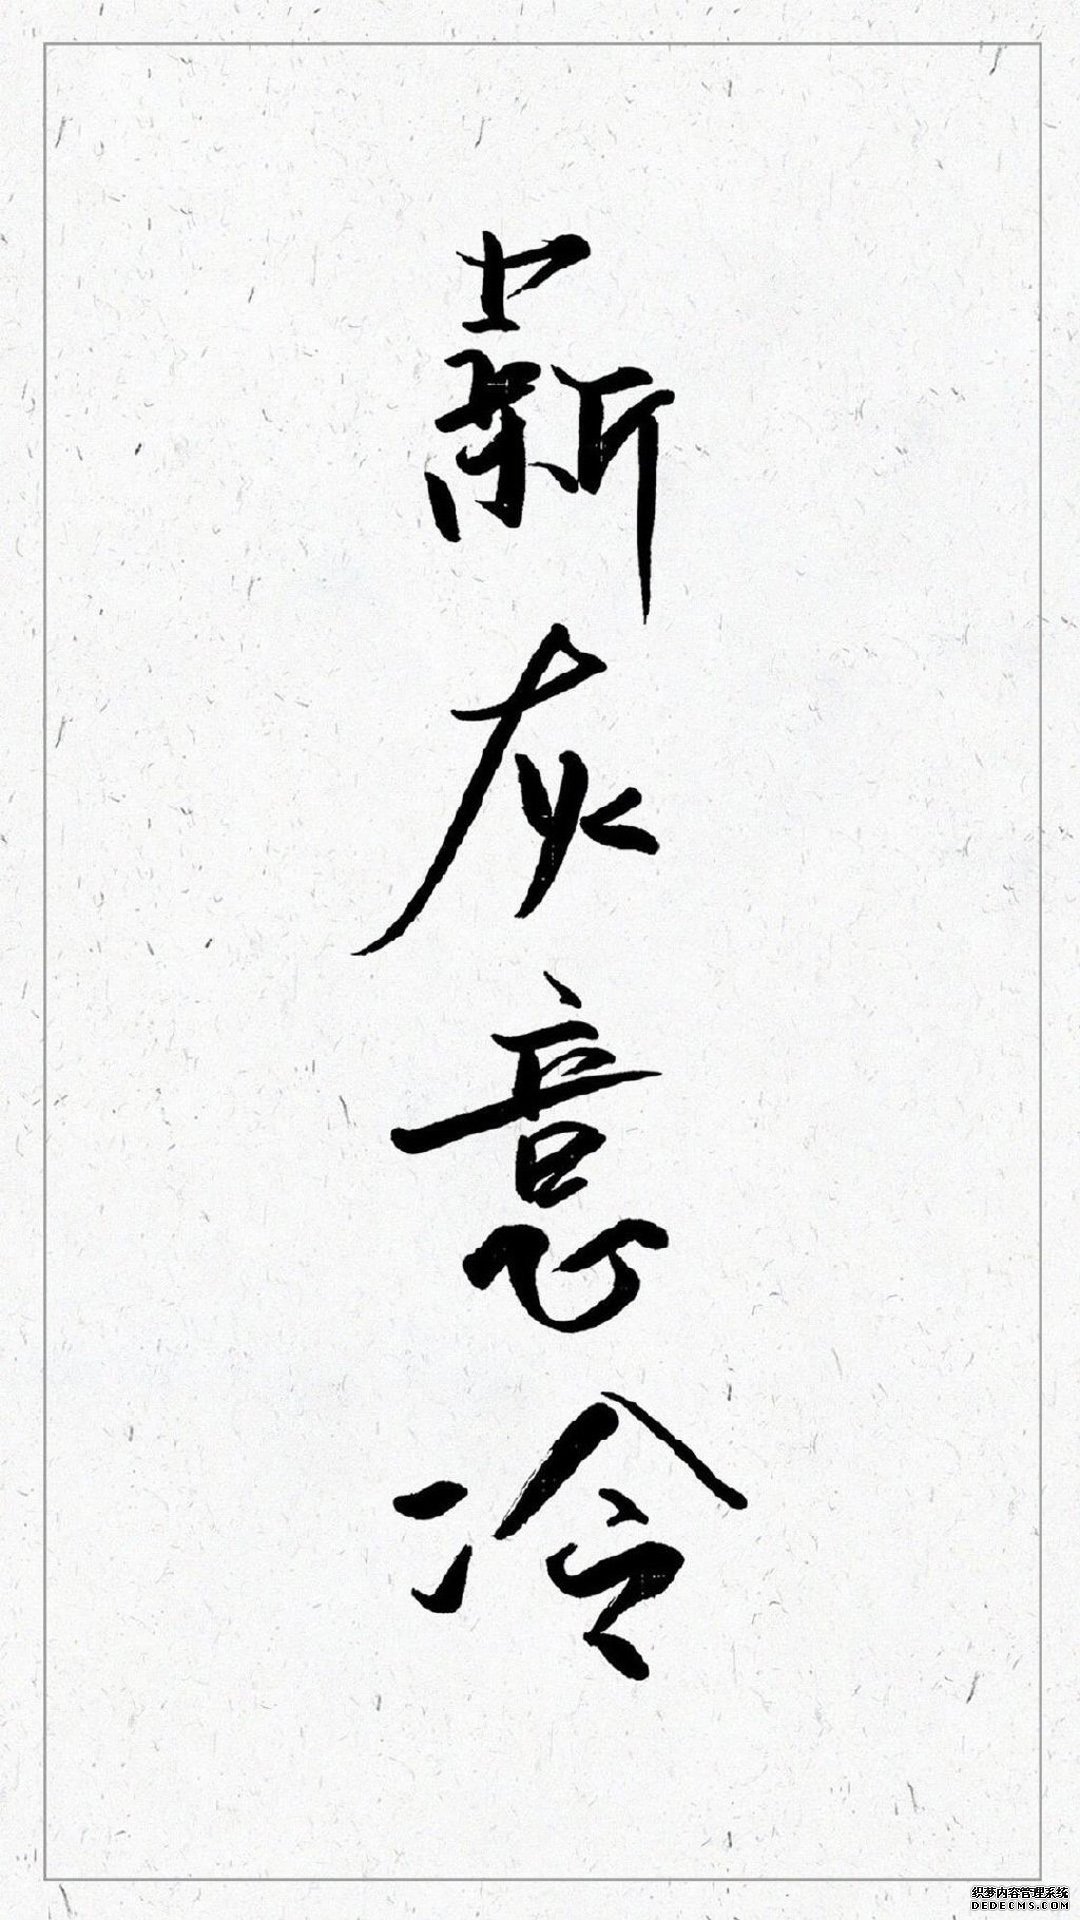 薪灰意冷
织梦内容管理系统
DEDECMS.COM